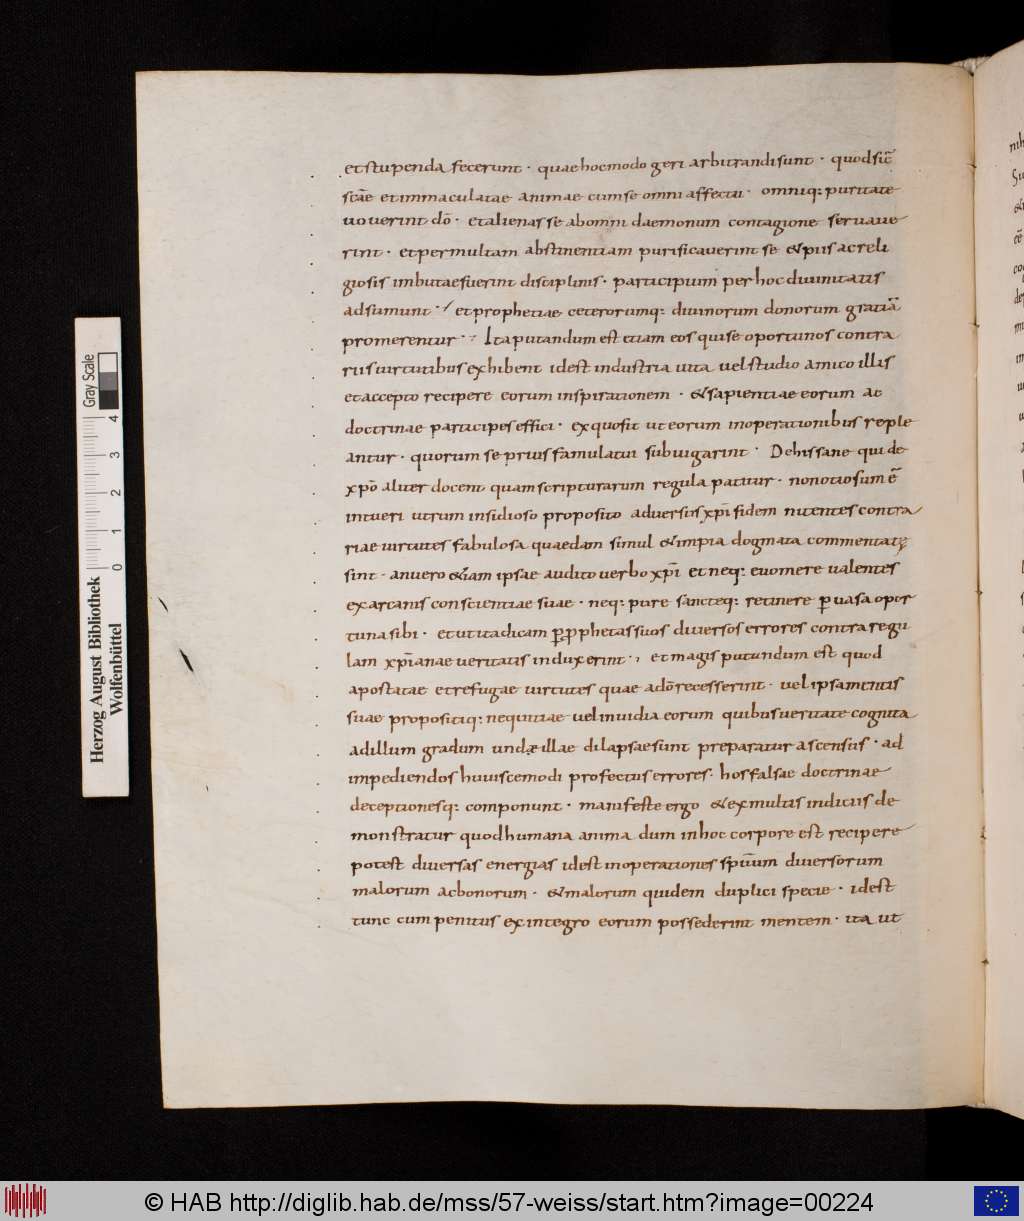 et stupenda fecerunt · quae hoc modo geri arbitrandi sunt · quod sic̄
sc̄ae et inmaculatae animae cum se omni affectui · omniq: puritate
uouerint dō · et alienas se ab omni daemonum contagione seruaue
rint · et per multam abstinentiam purificauerint se & piis ac reli
giosis imbutae fuerint disciplinis · participium per hoc diuinitatis
adsumunt · et prophetiae ceterorumq: diuinorum donorum gratiā
promerentur · Ita putandum est etiam eos qui se oportunos contra
riis uirtutibus exhibent id est industria uita uel studio amico illis
et accepto recipere eorum inspirationem · & sapientiae eorum ac
doctrinae participes effici · ex quo fit ut eorum inoperationibus reple
antur · quorum se prius famulatui subiugarint · De his sane qui de
xp̄o aliter docent quam scripturarum regula patitur · non otiosum ē
intueri utrum insidioso proposito aduersus xp̄i fidem nitentes contra
riae uirtutes fabulosa quaedam simul & impia dogmata commentatę
sint · an uero &iam ipsae audito uerbo xp̄i et neq: euomere ualentes
ex arcanis conscientiae suae · neq: pure sancteq: retinere p uasa opor
tuna sibi · et ut ita dicam p pphetas suos diuersos errores contra regu
lam xp̄ianae ueritatis induxerint · et magis putundum est quod
apostatae et refugae uirtutes quae a dō recesserint · uel ipsa mentis
suae propositiq: nequitiae uel inuidia eorum quibus ueritate cognita
ad illum gradum undæ illae dilapsae sunt preparatur ascensus · ad
impediendos huiuscemodi profectus errores · hos falsae doctrinae
deceptionesq: componunt · manifeste ergo & ex multis indiciis de
monstratur quod humana anima dum in hoc corpore est recipere
potest diuersas energias id est inoperationes spūum diuersorum
malorum ac bonorum · & malorum quidem duplici specie · id est
tunc cum penitus ex integro eorum possederint mentem · ita ut
Gray Scale
0 1 2 3 4
Herzog August Bibliothek
Wolfenbüttel
© HAB http://diglib.hab.de/mss/57-weiss/start.htm?image=00224